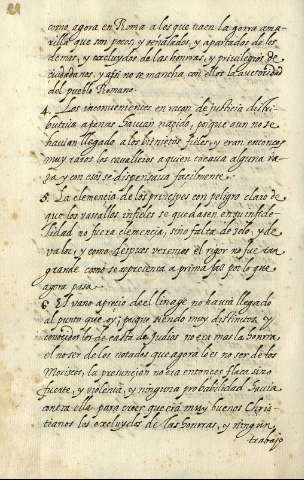 como agora en Roma a los que traen la gorra ama-
rilla que son pocos, y señalados, y apartados de los
demas, y excluydos de las honrras, y privilegios de
ciudadanos, y assi no se mancha con ellos la autoridad
del pueblo Romano.
4. Los inconvenientes en razon de justicia distri-
butiua apenas hauian nacido, porque aun no se
hauian llegado a los bisnietos fieles, y eran entonces
muy raros los caualleros a quien tocaua alguna ra-
za, y con estos se dispensaua facilmente.
5. La clemencia de los principes con peligro claro de
que los vasallos infieles se quedasen en su infide-
lidad no fuera clemencia, sino falta de zelo, y de
valor, y como despues veremos el rigor no fue tan
grande como se representa a prima faz por lo que
agora pasa.
6. El vano aprecio de el linaje no hauia llegado
al punto que oy; porque siendo muy distintos, y
conocidos los de casta de Judios no era mas la honrra
el no ser de los notados que agora lo es no ser de los
Moriscos, la presuncion no era entonces flaca sino
fuerte, y violenta, y ninguna probabilidad hauia
contra ella para creer que era muy buenos Chris-
tianos los excluydos de las honrras, y ningun
trabajo